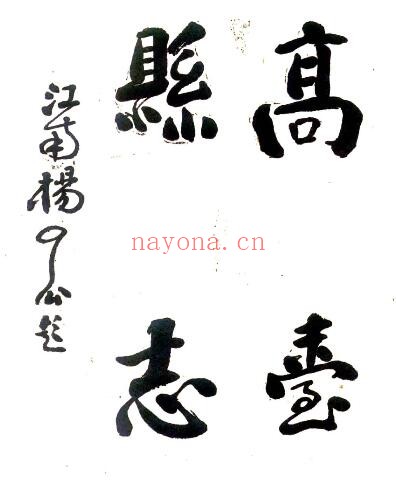 高臺
縣志
江南楊了公題
nayona.cn